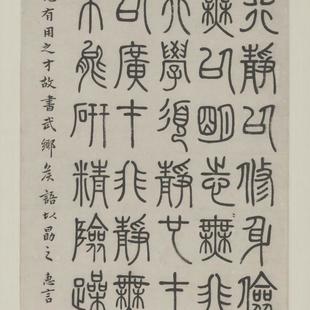 行靜以修身儉
無以明志非
夫學須靜也才
以廣才非靜無
不能研精險躁
有用之才故書武鄉矦語以勗之 惠言